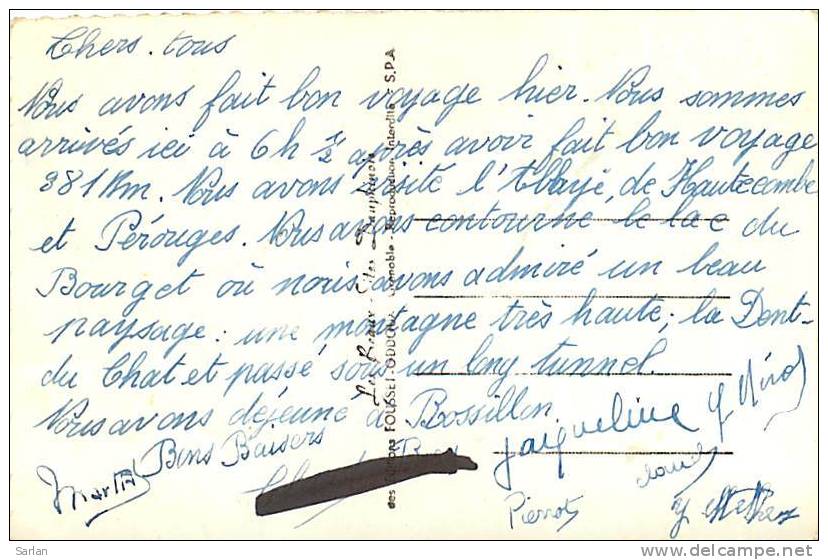 Chers tous
Nous avons fait bon voyage hier. Nous sommes
arrivés ici à 6h ½ après avoir fait bon voyage
381 Km. Nous avons visité l'Abbaye de Hautecombe
et Pérouges. Nous avons contourné le lac du
Bourget où nous avons admiré un beau
paysage: une montagne très haute; la Dent-
du Chat et passé sous un long tunnel.
Nous avons déjeuné à Rossillon
Bons Baisers
Jacqueline
Pierrot
des Editions FOUSSET-ODDOUX, Grenoble - Reproduction Interdite S.P.A
Sarlan
www.delcampe.net